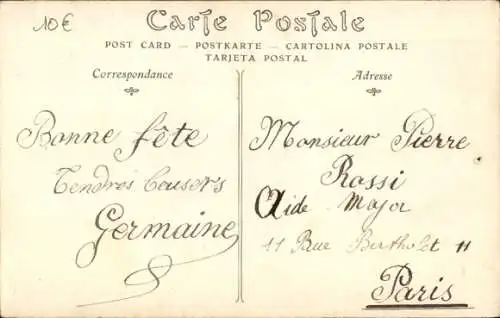 10€
Carte Postale
POST CARD — POSTKARTE — CARTOLINA POSTALE
TARJETA POSTAL
Correspondance
Bonne fête
Tendres baisers
Germaine
Adresse
Monsieur Pierre
Rossi
Aide Major
11 Rue Bertholet 11
Paris